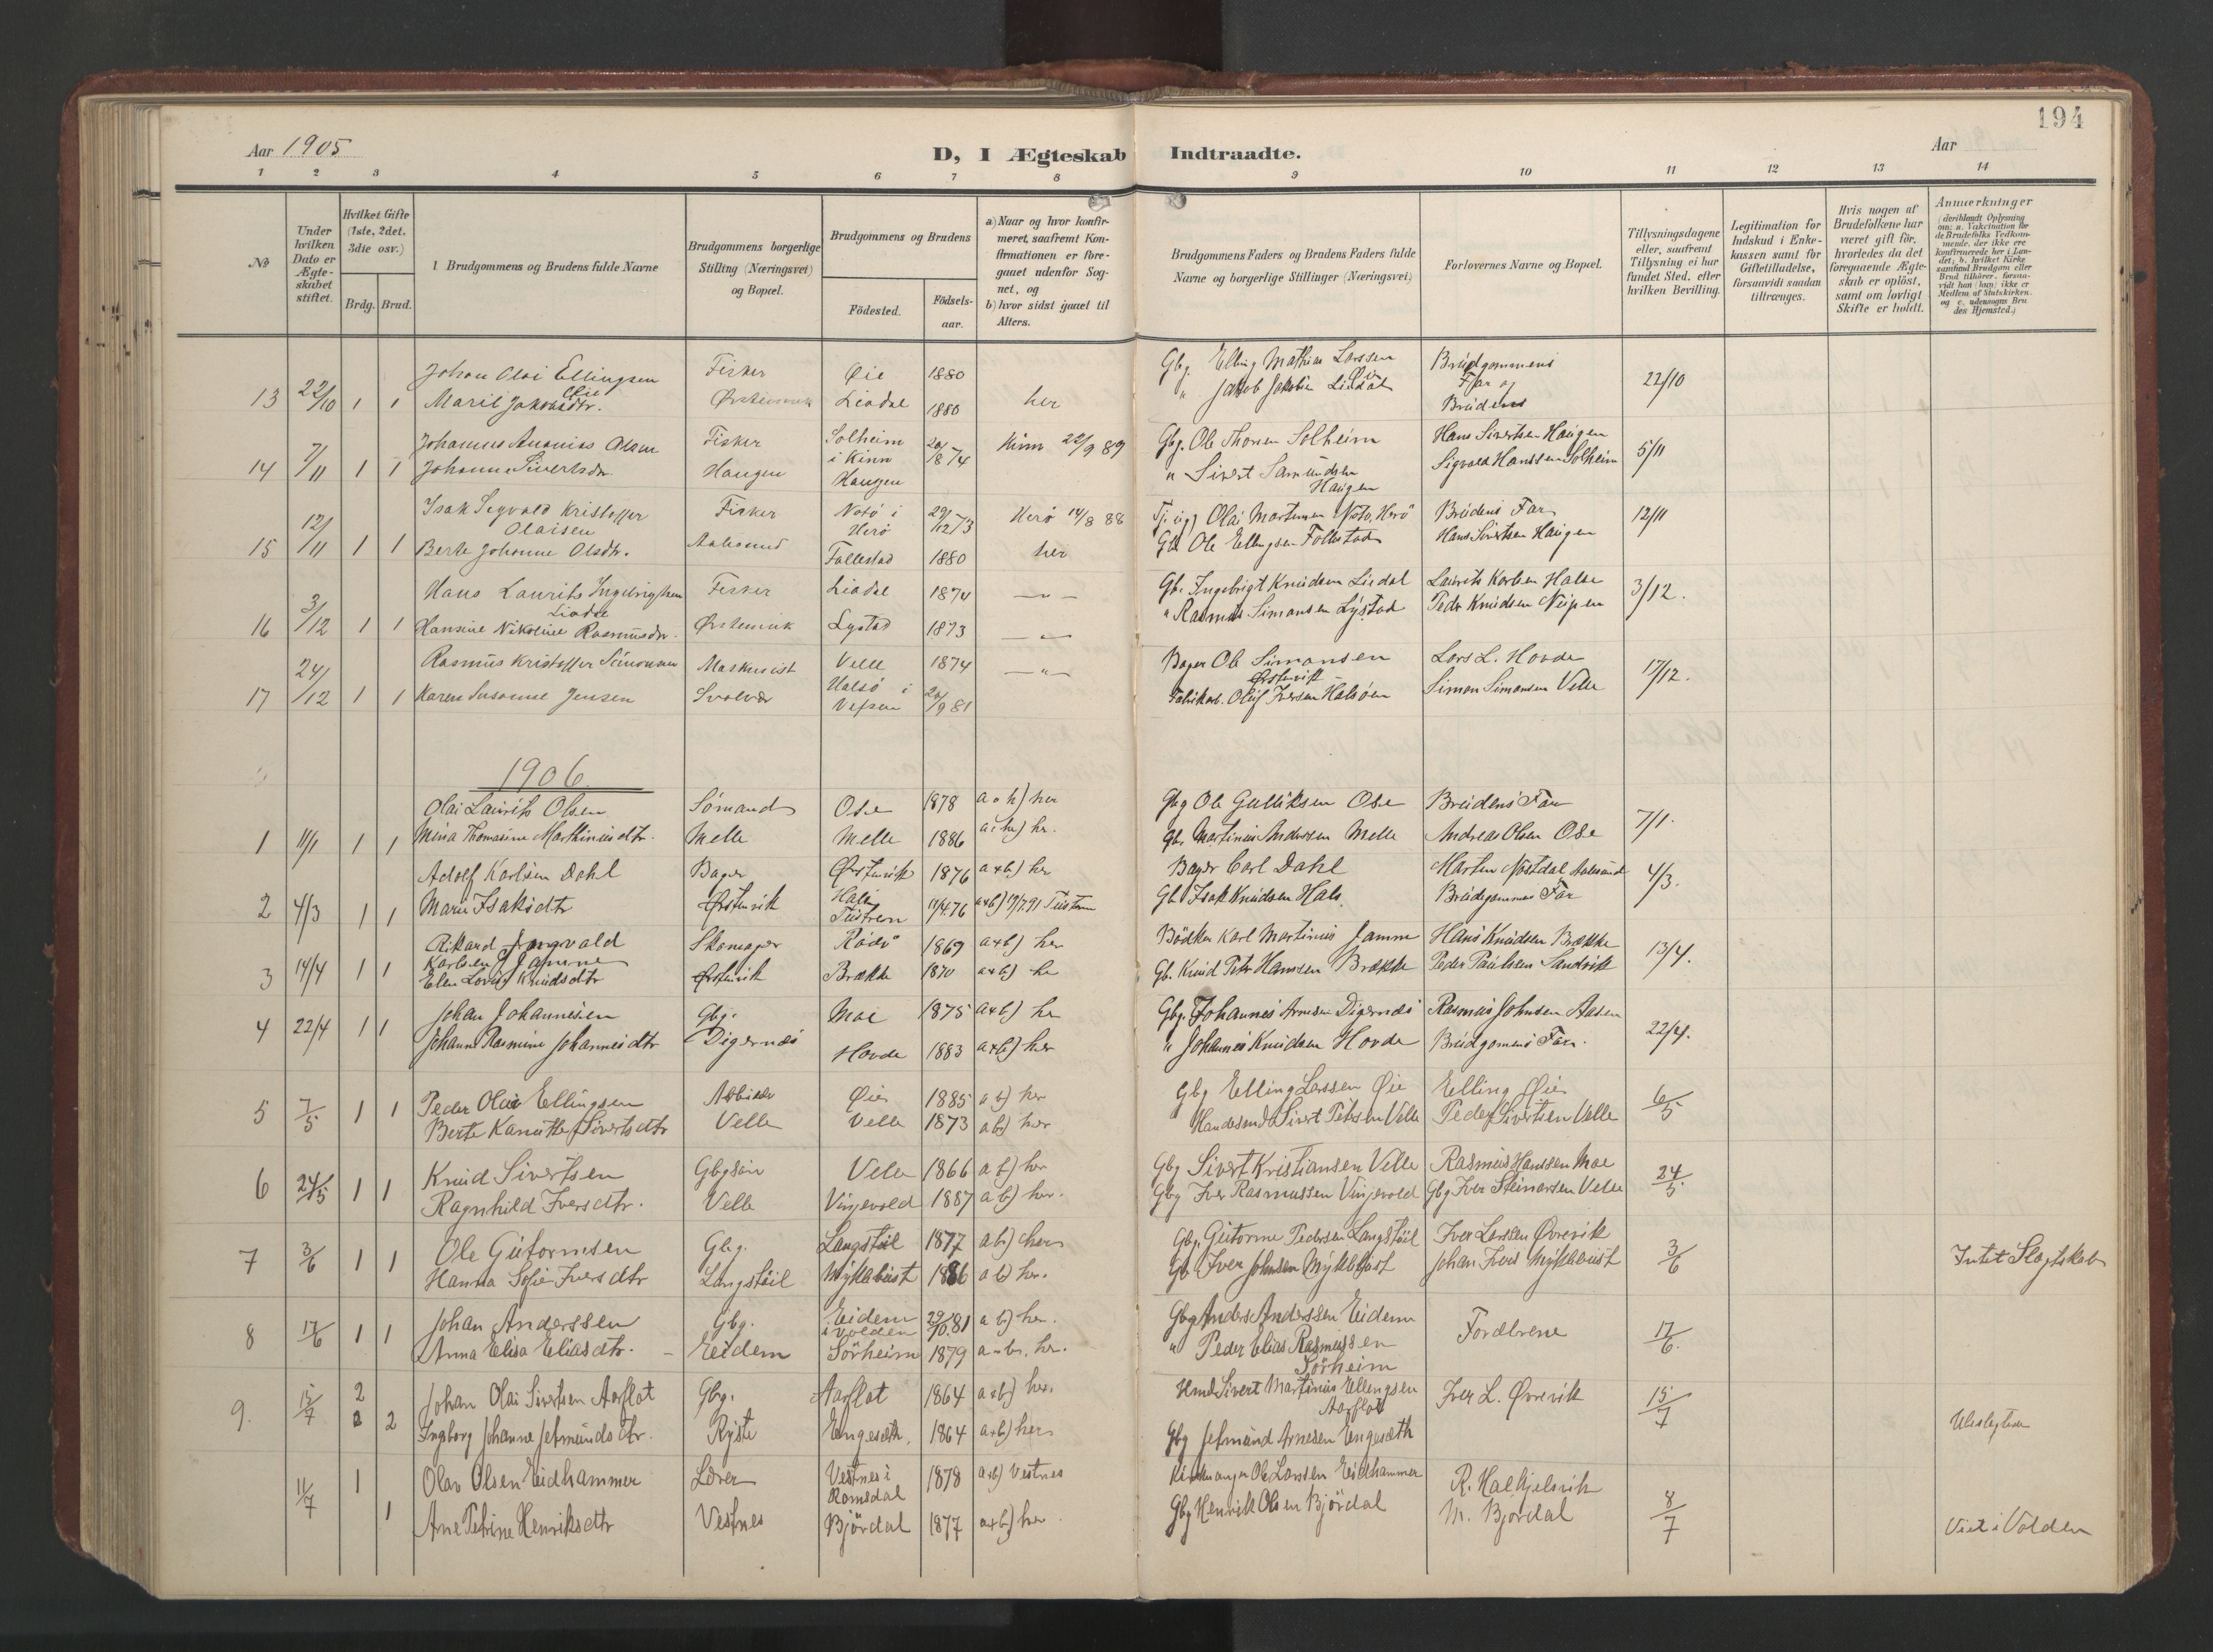 194
Aar 1905
D, I Ægteskab Indtraadte.
Aar
1 2 3 4 5 6 7 8 9 10 11 12 13 14
No
Under hvilken Dato er Ægteskabet stiftet.
Hvilket Gifte (1ste, 2det, 3die osv.)
Brdg. Brud.
Brudgommens og Brudens fulde Navne
Brudgommens borgerlige Stilling (Næringsvei) og Bopæl.
Brudgommens og Brudens
Födested.
Födselsaar.
a) Naar og hvor konfirmeret, saafremt Konfirmationen er foregaaet udenfor Sognet, og
b) hvor sidst gaaet til Alters.
Brudgommens Faders og Brudens Faders fulde Navne og borgerlige Stillinger (Næringsvei)
Forlovernes Navne og Bopæl.
Tillysningsdagene eller, saafremt Tillysning ei har fundet Sted, efter hvilken Bevilling.
Legitimation for Indskud i Enkekassen samt for Giftetilladelse, forsaavidt saadan tiltrænges.
Hvis nogen af Brudefolkene har været gift för, hvorledes da det foregaaende Ægteskab er oplöst, samt om lovligt Skifte er holdt.
Anmerkninger
13 22/10 1 1 Johan Olai Ellingsen Øie Fisker Øie 1880 Gbg. Elling Mathias Larssen Øie Brudgommens Far og 22/10
Marie Jakobsdtr. Liadal 1880 her " Jakob Jakobsen Liadal Brudens
14 7/11 1 1 Johannes Ananias Olsen Fisker Solheim i Kinn 20/8 74 Kinn 22/9 89 Gbg. Ole Thorsen Solheim Hans Sivertsen Haugen 5/11
Johanne Sivertsdtr. Haugen Haugen " Sivert Samundsen Haugen Sigvald Hanssen Solheim
15 12/11 1 1 Isak Sigvald Kristoffer Olaisen Fisker Notö i Herö 29/12 73 Herö 14/8 88 Olai Martinsen Notö, Herö Brudens Far 12/11
Berte Johanne Olsdtr. Aalesund Follestad 1880 her Gbr Ole Ellingsen Follestad Hans Sivertsen Haugen
16 3/12 1 1 Hans Laurits Ingebrigtsen Liadal Fisker Liadal 1874 — " — Gb. Ingebrigt Knudsen Liadal Laurits Karlsen Halse 3/12.
Hansine Nikoline Rasmusdtr. Ørstenvik Lystad 1873 — " — " Rasmus Simonsen Lystad Peder Knudsen Neipen
17 24/12 1 1 Rasmus Kristoffer Simonsen Maskinist Velle 1874 — " — Bager Ole Simonsen Ørstenvik Lars L. Hovde 17/12.
Karen Susanne Jensen Svolvær Halsö i Vefsen 20/9 81 Fabrikarb. Oluf Iversen Halsöen Simon Simonsen Velle
1906
1 11/1 1 1 Olai Laurits Olsen Sömand Ose 1878 a o b) her Gbg Ole Gulliksen Ose Brudens Far 7/1.
Mina Thomasine Martinusdtr. Melle Melle 1886 her. Gb. Martinus Andersen Melle Andreas Olsen Ose
2 4/3 1 1 Adolf Karlsen Dahl Bager Ørstenvik 1876 a+b) her Bager Carl Dahl Marten Nöstdal Aalesund 4/3.
Marie Isaksdtr Ørstenvik Hals Tustern 11/4 76 Tustern Gb. Isak Knudsen Hals. Brudgommens Far
3 14/4 1 1 Rikard Ingvald Karlsen Jamne Skomager Rödö 1869 a+b) her Bödker Karl Martinus Jamne Hans Knudsen Brække 13/4.
Elen Lovise Knudsdtr Ørstenvik Brække 1870 a+b) her Gb. Knud Petr Hanssen Brække Peder Paulsen Sandvik
4 22/4 1 1 Johan Johannesen Gbg. Moe 1875 a+b) her Gbg. Johannes Arnesen Digernæs Rasmus Johnsen Aasen 22/4.
Johanne Rasmine Johannesdtr Digernæs Hovde 1883 a+b) her " Johannes Knudsen Hovde Brudgomens Far.
5 7/5 1 1 Peder Olai Ellingsen Arbeider Øie 1885 a b) her Gbg Elling Larssen Øie Elling Øie 6/5
Berte Kanutte Sivertsdtr Velle Velle 1873 a b) her Handelsmd Sivert Petersen Velle Peder Sivertsen Velle
6 24/5 1 1 Knud Sivertsen Gbgsön Velle 1866 a b) her Gbg Sivert Kristiansen Velle Rasmus Hanssen Moe 24/5.
Ragnhild Iversdtr. Velle Vinjevold 1887 a b) her. Gbg Iver Rasmussen Vinjevold Gbg Iver Steinarsen Velle
7 3/6 1 1 Ole Guttormsen Gbg. Langstöil 1877 a b) her Gbg. Guttorme Pedersen Langstöil Iver Larsen Øvrevik 3/6 Intet Slægtskab
Hanna Sofie Iversdtr Langstöil Myklebust 1886 a b) her. Gb Iver Johnsen Myklebust Johan Ivers Myklebust
8 17/6 1 1 Johan Anderssen Gbg. Eidem i Volden 29/10 81 a b) her. Gbg Anders Anderssen Eidem Forældrene 17/6.
Anna Elisa Eliasdtr. Eidem Sörheim 1879 her. " Peder Elias Rasmussen Sörheim
9. 15/7 2 2 2 Johan Olai Sivertsen Aarflot Gbg. Aarflot 1864 a+b) her. Hmd Sivert Martinus Ellingsen Aarflot Iver L. Øvrevik 15/7
Ingborg Johanne Jetmundsdtr. Ryste Engeseth. 1864 a+b) her Gbg Jetmund Arnesen Engeseth
11/7 1 Olav Olsen Eidhammer Lærer Vestnes i Romsdal 1878 a+b) Vestnes Kirkesanger Ole Larssen Eidhammer R. Halkjelsvik 8/7
1 Ane Petrine Henriksdtr Vestnes Björdal 1877 a+b) her Gbg Henrik Olsen Björdal M. Björdal Viet i Volden